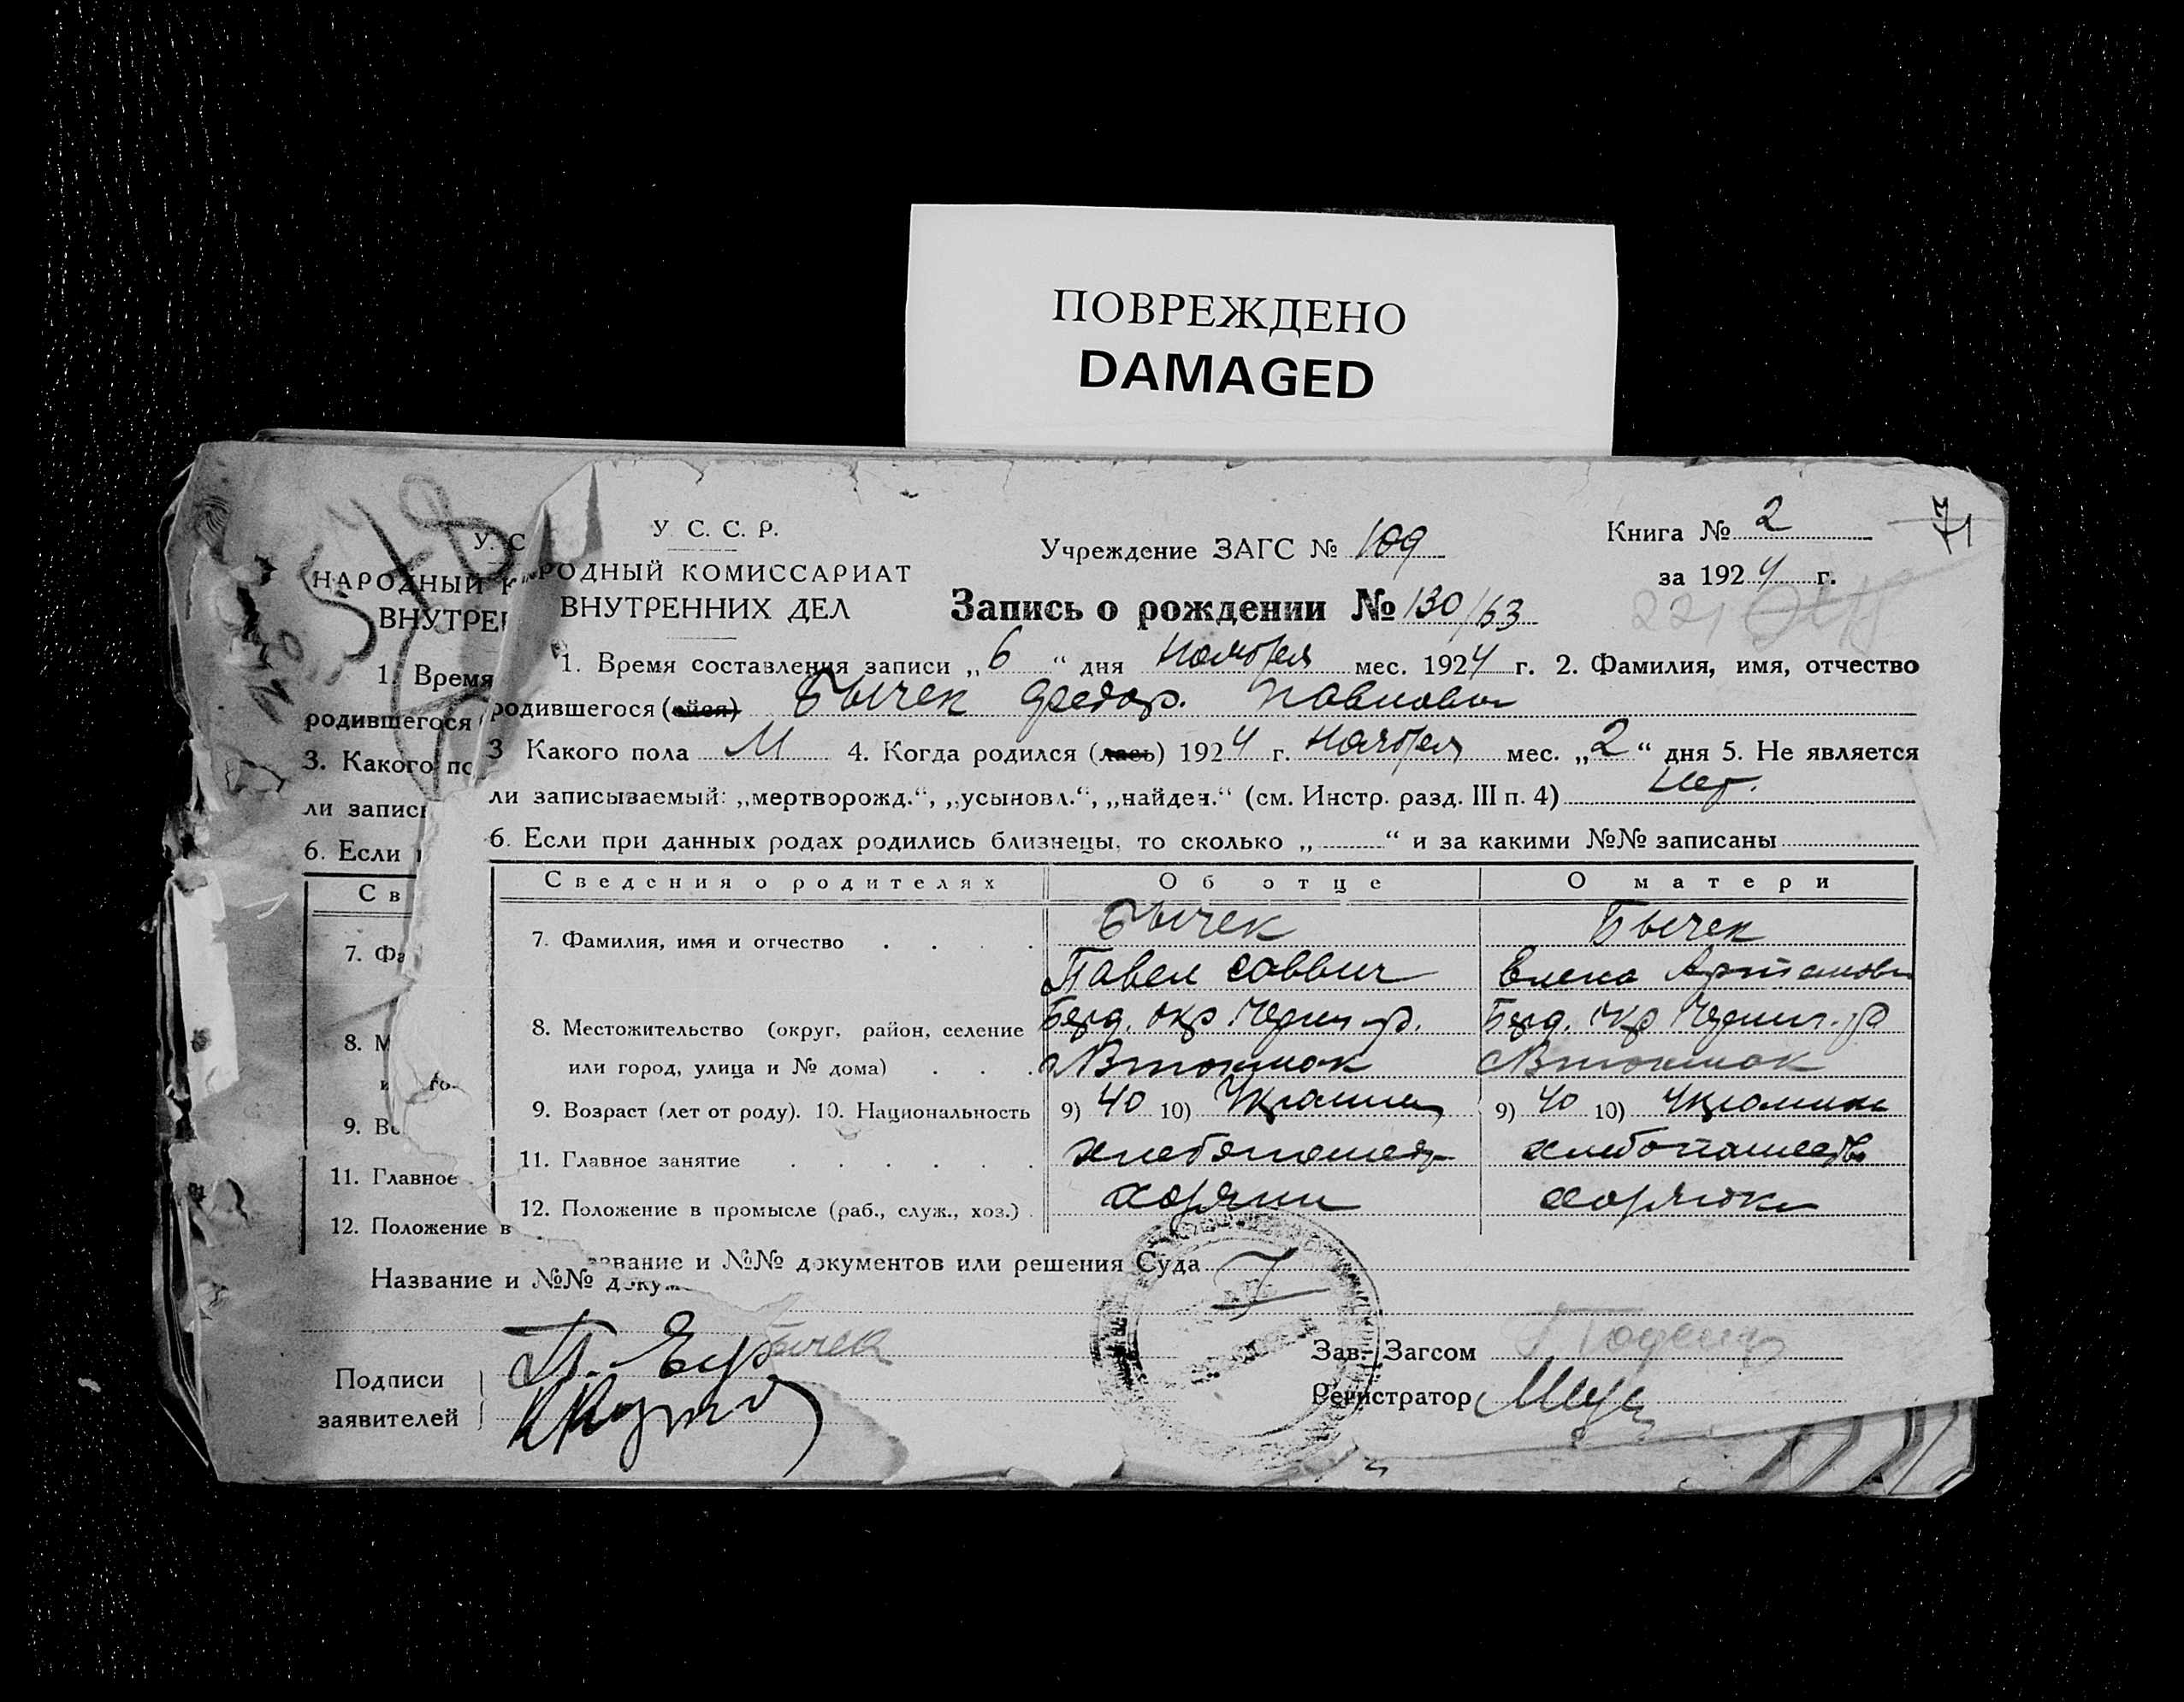 ПОВРЕЖДЕНО
DAMAGED
У. С. С. Р.
РОДНЫЙ КОМИССАРИАТ
ВНУТРЕННИХ ДЕЛ
Учреждение ЗАГС № 109
Книга № 2
71
за 1924 г.
Запись о рождении № 130/63
1. Время составления записи „6“ дня Ноября мес. 1924 г. 2. Фамилия, имя, отчество
родившегося (айся) Бычек Федор. Павлович
3 Какого пола М 4. Когда родился (лась) 1924 г. Ноября мес. „2“ дня 5. Не является
ли записываемый: „мертворожд.“, „усыновл.“, „найден.“ (см. Инстр. разд. III п. 4) Нет.
6. Если при данных родах родились близнецы, то сколько „ “ и за какими №№ записаны
Сведения о родителях Об отце О матери
7. Фамилия, имя и отчество Бычек Бычек
Павел Саввич Елена Артемовн
8. Местожительство (округ, район, селение Берд. окр. Черниг. р. Берд. окр. Черниг. р
или город, улица и № дома)
9. Возраст (лет от роду). 10. Национальность 9) 40 10) Украинец 9) 40 10) Украинка
11. Главное занятие хлебопашест хлебопашество
12. Положение в промысле (раб., служ., хоз.) хозяин хозяйка
звание и №№ документов или решения Суда
У. С
НАРОДНЫЙ К
ВНУТРЕН
1. Время
родившегося
3. Какого по
ли запис
6. Если
Св
7. Фа
8. М
и го
9. Во
11. Главное
12. Положение в
Название и №№ докум
Подписи
заявителей
Бычек
Зав. Загсом
Регистратор